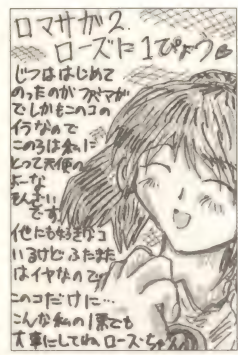 ロマサガ2.
ローズに1ぴょう
じつははじめて
のったのがファミマガ
でしかもこのコの
イラなので
このコは私に
とって天使の
よーな
そんざい
です。
他にも好きなコ
いるけどふたまた
はイヤなので
このコだけに…
こんな私の1票でも
大事にしてね ローズちゃん